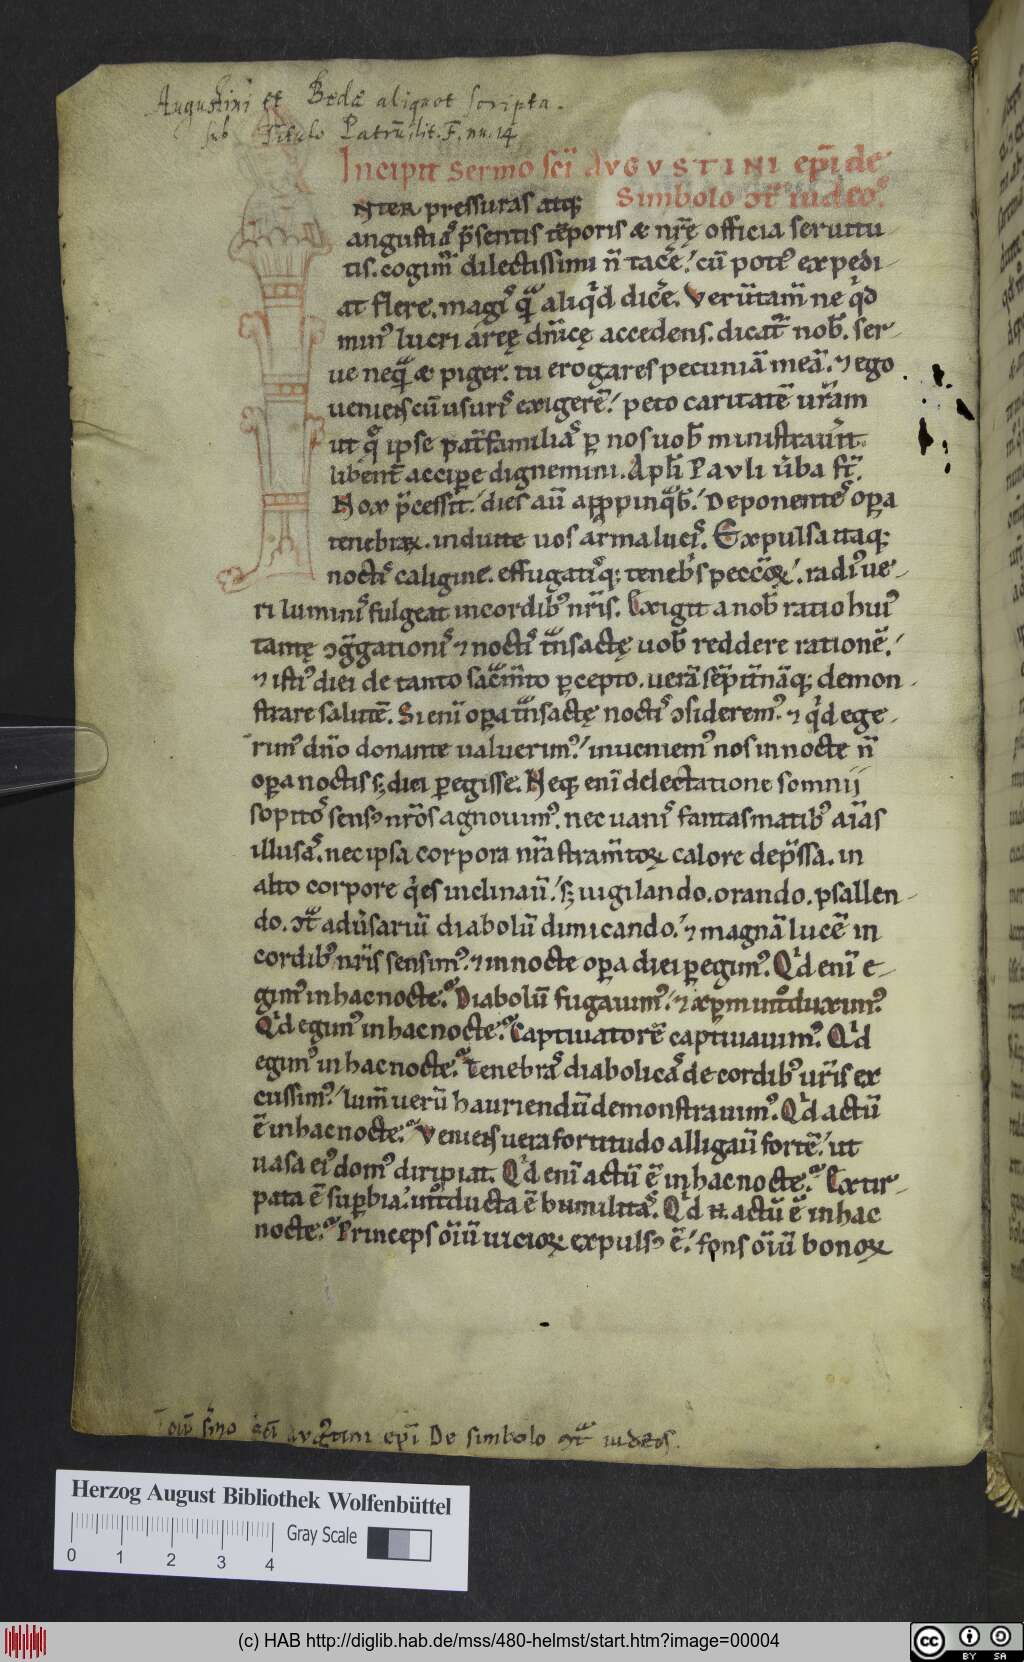 Augustini et Bedæ aliquot scripta.
sub Titulo Patrū lit. F. nu. 14
Incipit sermo sc̄i AVGVSTINI ep̄i de
Simbolo ↄt̄ iudeoˢ.
NTER pressuras atq;
angustiaˢ p̄sentis tēporis & nr̄ę officia seruitu
tis. cogim̄ dilectissimi n̄ tacē. cū potꝰ expedi-
at flere. magiˢ qͣ̄ aliqͥd dicē. Verūtam̄ ne qͥd
minꝰ lucri areę dn̄icę accedens. dicat̄ nob̄. ser-
ue neqͣ̄ & piger. tu erogares pecuniā meā. ⁊ ego
ueniens cū usuriˢ exigerē. peto caritatē ur̄am
ut qͦˢ ipse pat̄familiaˢ ꝑ nos uob̄ ministrauit.
libent̄ accipere dignemini. Apl̄i Pavli ūba st̄.
Nox p̄cessit. dies aū appinqͣb̄. Deponenteˢ oꝑa
tenebraꝝ. induite uos arma luciˢ. Expulsa itaq;
noctiˢ caligine. effugatiˢq; teneb̄s peccōꝝ. radiꝰ ue-
ri luminiˢ fulgeat in cordibꝰ nr̄is. Exigit a nob̄ ratio huiꝰ
tantę ↄḡgationiˢ ⁊ noctiˢ tͣnsactę uob̄ reddere rationē.
⁊ istiꝰ diei de tanto sacͣm̄to ꝑcepto. uerā sēpit̄nāq; demon-
strare salutē. Si enī oꝑa tͣnsactę noctiˢ ↄsideremꝰ. ⁊ qͥd ege-
rimꝰ dn̄o donante ualuerimꝰ. inueniemꝰ nos in nocte n̄
oꝑa noctis s; diei ꝑegisse. Neq; enī delectatione somnii
sopitoˢ sensꝰ nr̄os agnouimꝰ. nec uaniˢ fantasmatibꝰ aīas
illusaˢ. nec ipsa corpora nr̄a stram̄toꝝ calore dep̄ssa. in
alto corpore qͥes inclinaū. s; uigilando. orando. psallen-
do. ↄt̄ adūsariū diabolū dimicando. ⁊ magnā lucē in
cordibꝰ nr̄is sensimꝰ. ⁊ in nocte oꝑa diei ꝑegimꝰ. Qͥd enī e-
gimꝰ in hac nocte. Diabolū fugauimꝰ. ⁊ xp̄m int̄duximꝰ.
Qͥd egimꝰ in hac nocte. Captiuatorē captiuauimꝰ. Qͥd
egimꝰ in hac nocte. Tenebraˢ diabolicaˢ de cordibꝰ ur̄is ex
cussimꝰ. lum̄ uerū hauriendū demonstrauimꝰ. Qͥd actū
ē in hac nocte. Veniens uera fortitudo alligaū fortē. ut
uasa eiꝰ domꝰ diripiat. Qͥd enī actū ē in hac nocte. Extir-
pata ē suꝑbia. int̄ducta ē humilitaˢ. Qͥd n̄. actū ē in hac
nocte. Princeps oīū uicioꝝ expulsꝰ ē. fons oīū bonoꝝ
sīmo sc̄i avgꝰtini ep̄i De simbolo ↄt̄ iudeos.
Herzog August Bibliothek Wolfenbüttel
Gray Scale
0 1 2 3 4
(c) HAB http://diglib.hab.de/mss/480-helmst/start.htm?image=00004
cc BY SA